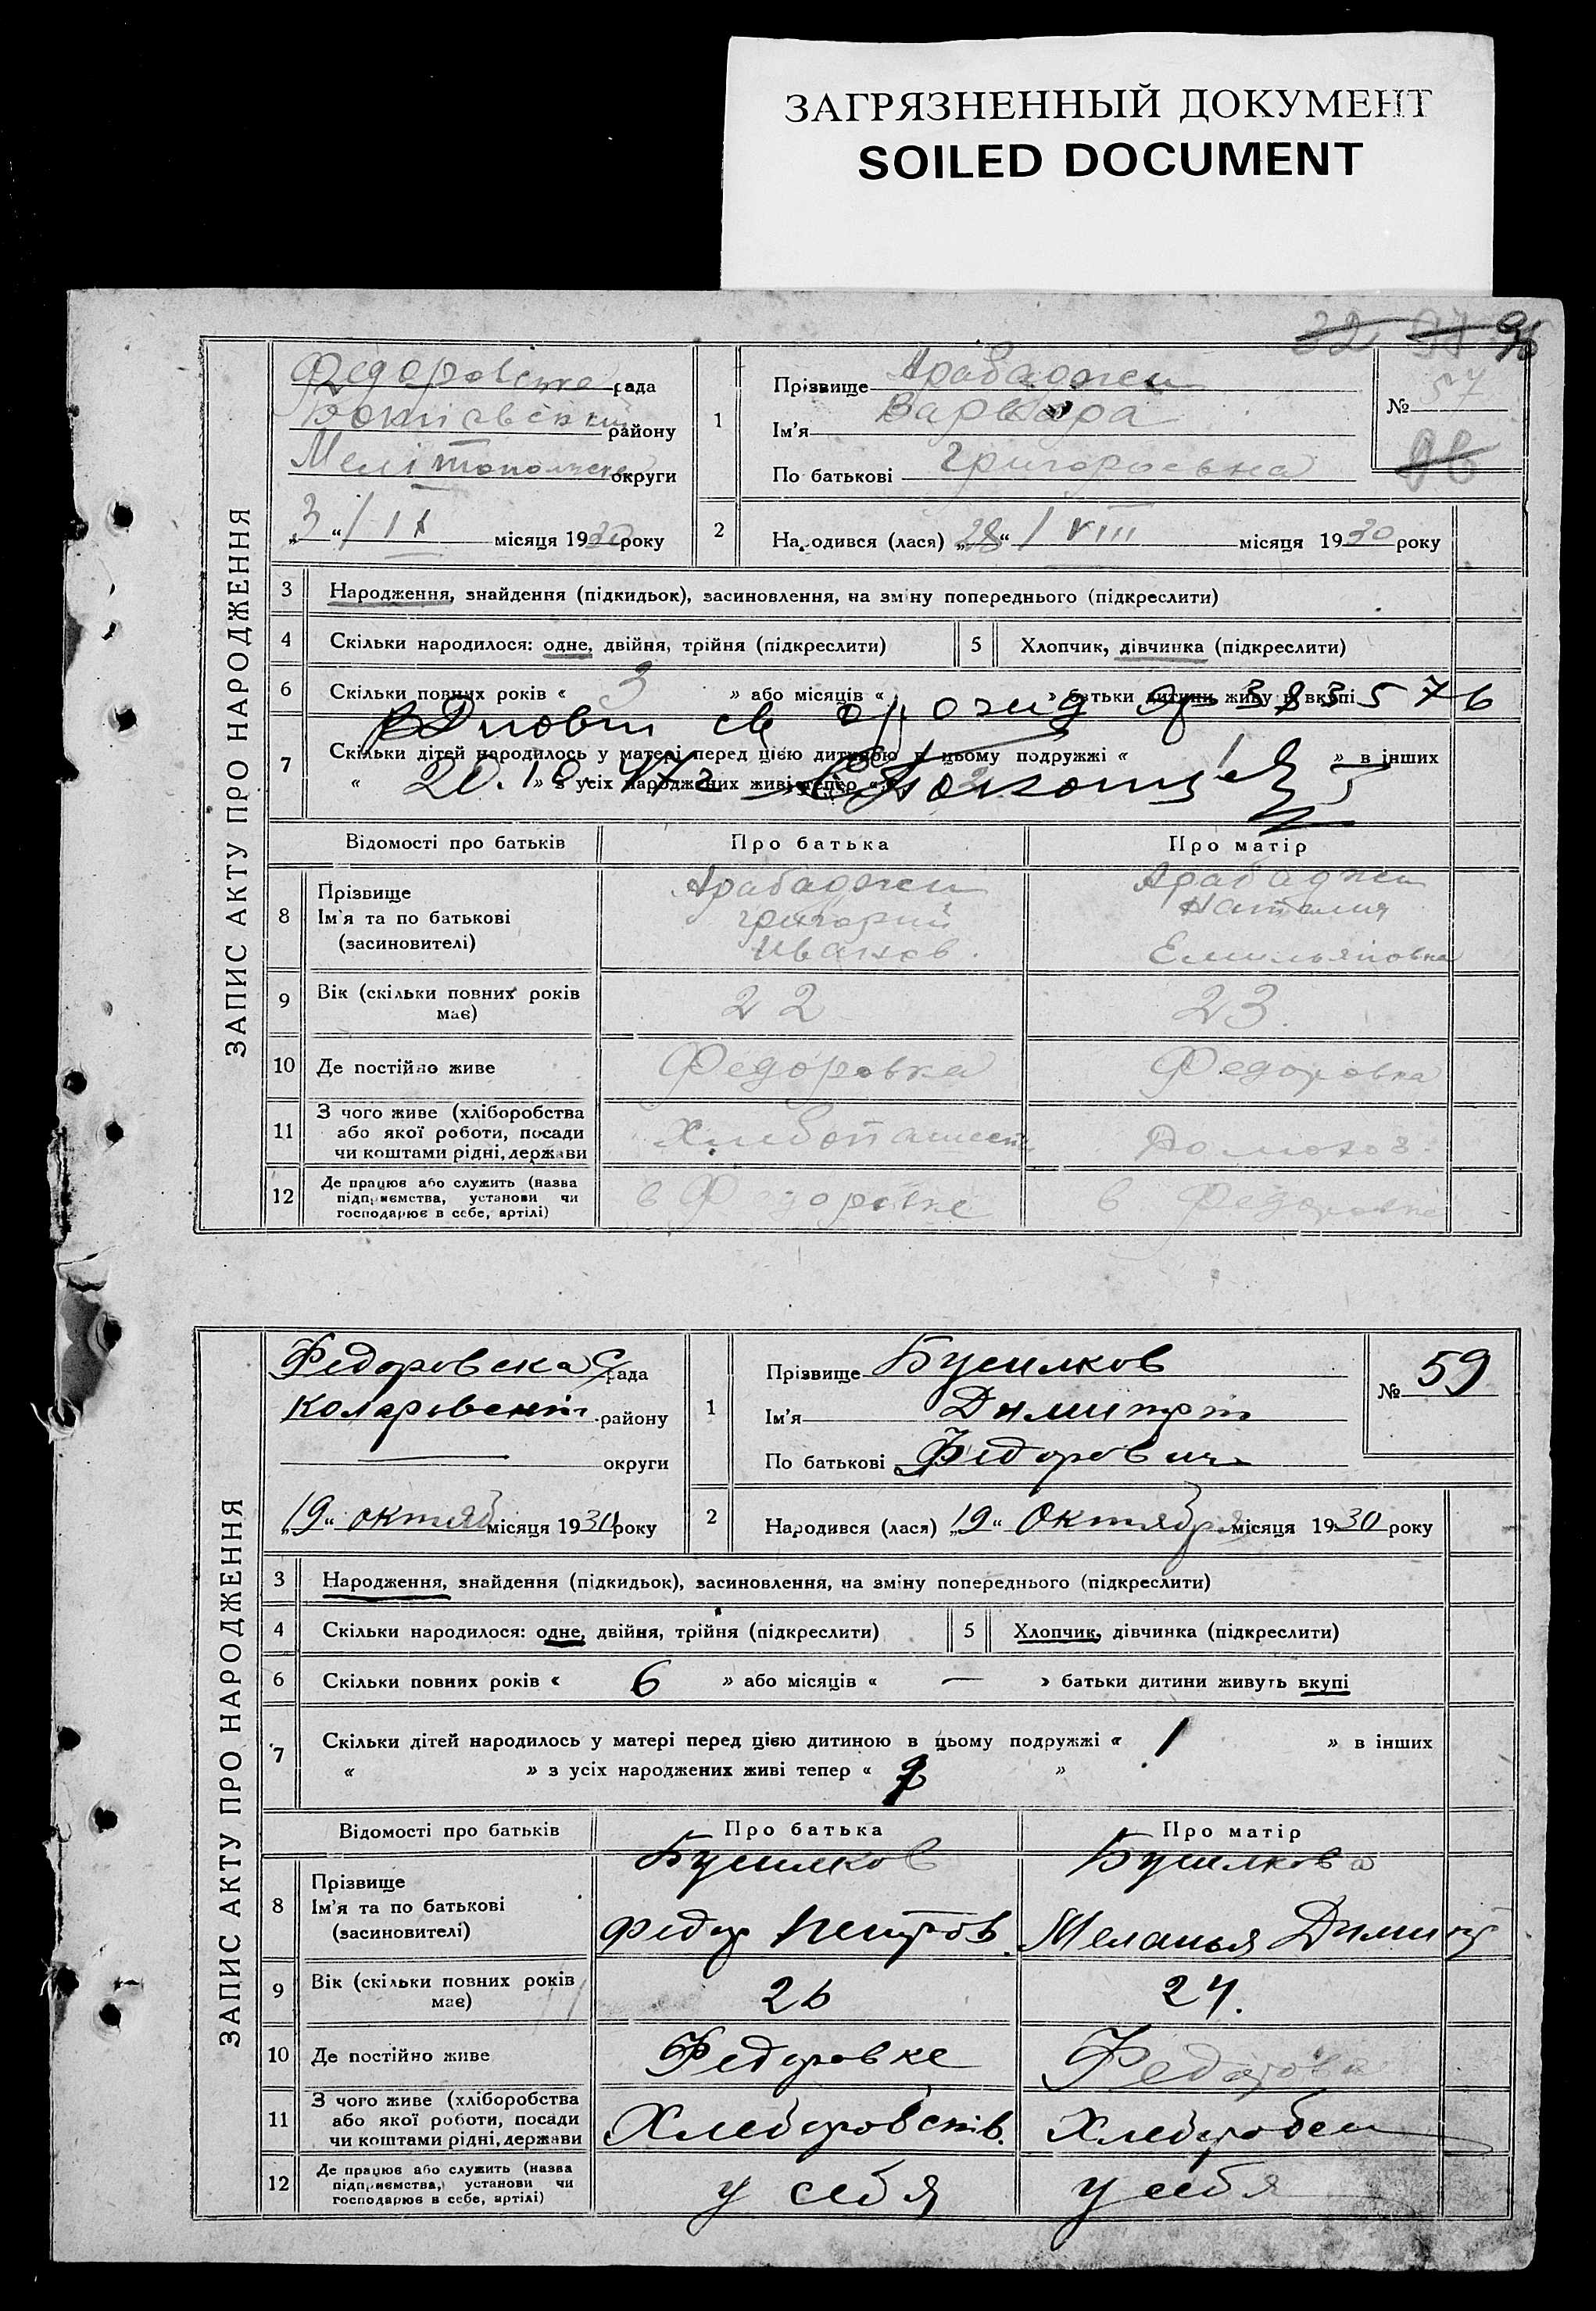 ЗАГРЯЗНЕННЫЙ ДОКУМЕНТ
SOILED DOCUMENT
32 97 96
ЗАПИС АКТУ ПРО НАРОДЖЕННЯ
рада
району
округи
„3“ / IX місяця 1930 року
1
Прізвище Арабаджи
Ім'я Варвара
По батькові Григорьевна
№ 57
2
Народився (лася) „28“ / VIII місяця 1930 року
3
Народження, знайдення (підкидьок), засиновлення, на зміну попереднього (підкреслити)
4
Скільки народилося: одне, двійня, трійня (підкреслити)
5
Хлопчик, дівчинка (підкреслити)
6
Скільки повних років « 3 » або місяців « » батьки дитини живу вкупі
383576
7
Скільки дітей народилось у матері перед цією дитиною в цьому подружжі « 1 » в інших
« » з усіх народжених живі тепер «
20.10.47 г
Відомості про батьків
Про батька
Про матір
8
Прізвище
Ім'я та по батькові
(засиновителі)
Арабаджи
Григорий
Иванов.
Арабаджи
Наталия
Емильяновна
9
Вік (скільки повних років
має)
22
23.
10
Де постійно живе
Федоровка
Федоровка
11
З чого живе (хліборобства
або якої роботи, посади
чи коштами рідні, держави
Домохоз.
12
Де працює або служить (назва
підприємства, установи чи
господарює в себе, артілі)
в Федоровке
в Федоровке
ЗАПИС АКТУ ПРО НАРОДЖЕННЯ
Федоровска С/рада
району
округи
„19“ октяб місяця 1930 року
1
Прізвище Бусилков
Ім'я Димитрт
По батькові Федорович
№ 59
2
Народився (лася) „19“ Октября місяця 1930 року
3
Народження, знайдення (підкидьок), засиновлення, на зміну попереднього (підкреслити)
4
Скільки народилося: одне, двійня, трійня (підкреслити)
5
Хлопчик, дівчинка (підкреслити)
6
Скільки повних років « 6 » або місяців « — » батьки дитини живуть вкупі
7
Скільки дітей народилось у матері перед цією дитиною в цьому подружжі « 1 » в інших
« » з усіх народжених живі тепер « 2 »
Відомості про батьків
Про батька
Про матір
8
Прізвище
Ім'я та по батькові
(засиновителі)
Бусилков
Федор Петров.
Бусилкова
Меланья Димит
9
Вік (скільки повних років
має)
26
24.
10
Де постійно живе
Федоровке
11
З чого живе (хліборобства
або якої роботи, посади
чи коштами рідні, держави
12
Де працює або служить (назва
підприємства, установи чи
господарює в себе, артілі)
у себя
у себя